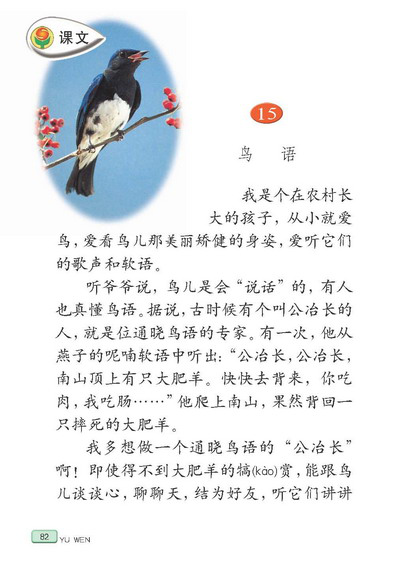 课文
15
鸟 语
我是个在农村长
大的孩子，从小就爱
鸟，爱看鸟儿那美丽矫健的身姿，爱听它们
的歌声和软语。
听爷爷说，鸟儿是会“说话”的，有人
也真懂鸟语。据说，古时候有个叫公冶长的
人，就是位通晓鸟语的专家。有一次，他从
燕子的呢喃软语中听出：“公冶长，公冶长，
南山顶上有只大肥羊。快快去背来，你吃
肉，我吃肠……”他爬上南山，果然背回一
只摔死的大肥羊。
我多想做一个通晓鸟语的“公冶长”
啊！即使得不到大肥羊的犒(kào)赏，能跟鸟
儿谈谈心，聊聊天，结为好友，听它们讲讲
82
YU WEN